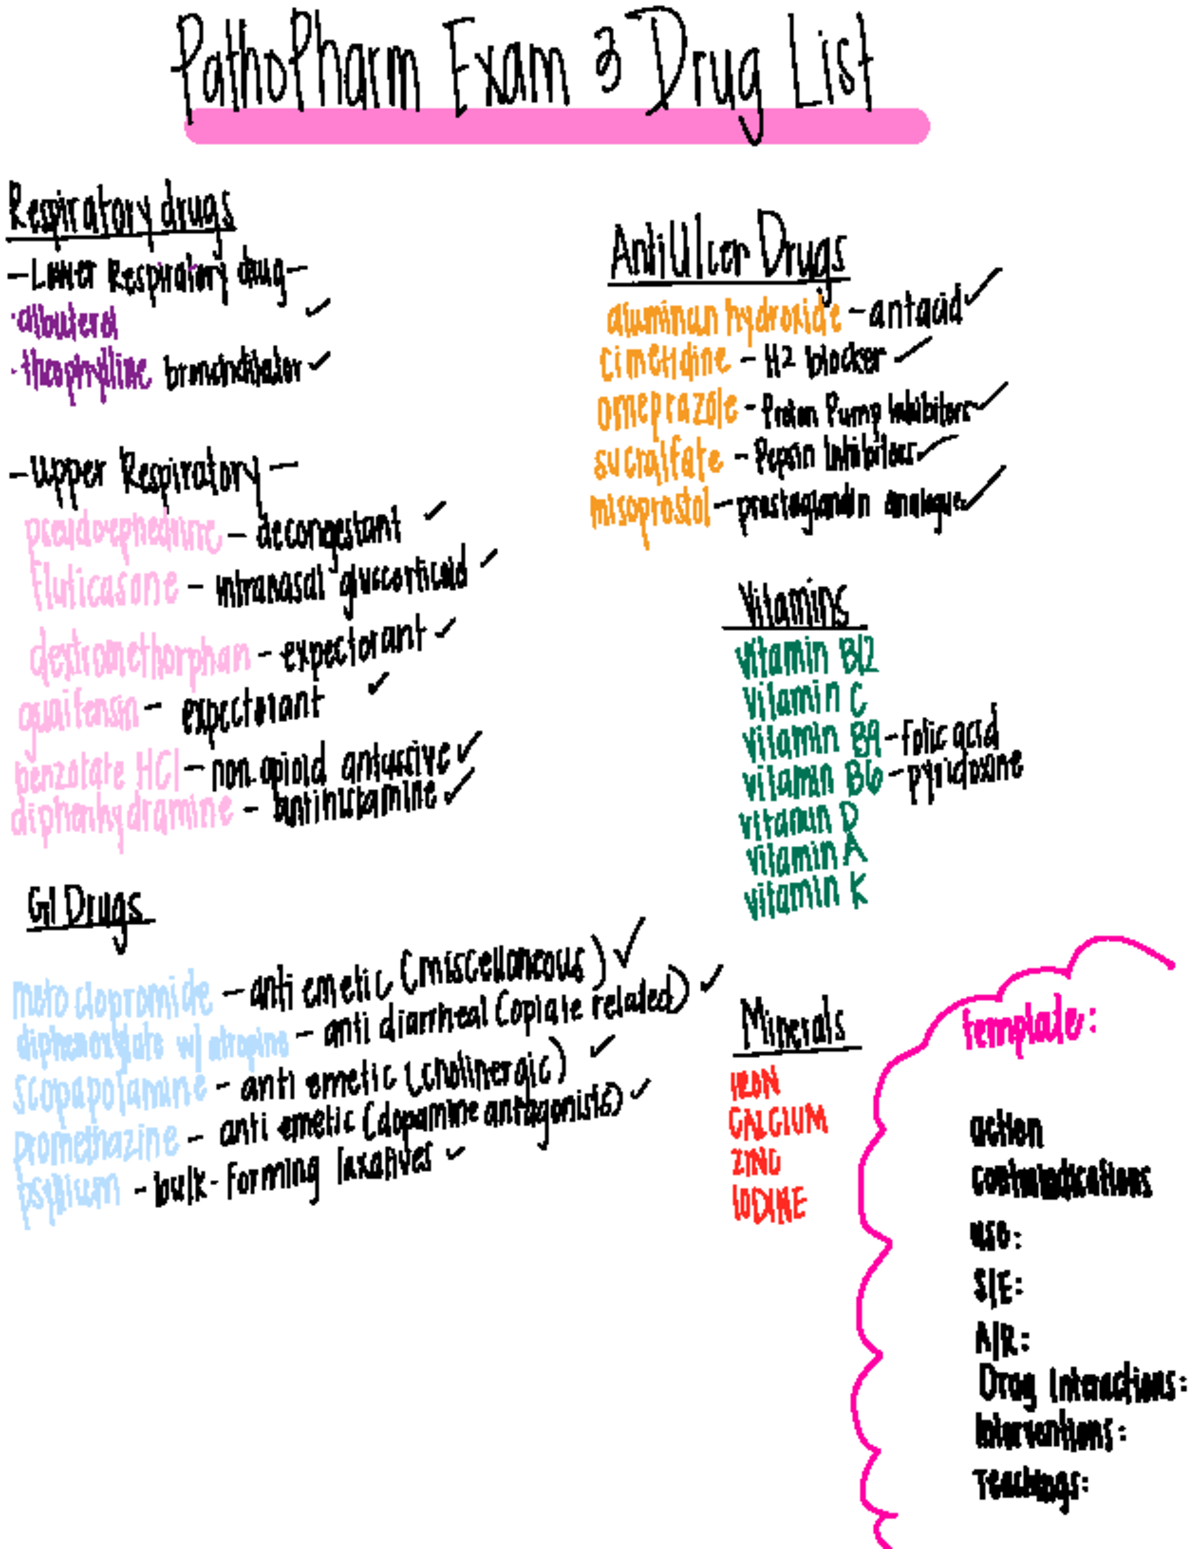 PathoPharm Exam 3 Drug List
Respiratory drugs
-Lower Respiratory drug-
·albuterol ✓
·theophylline bronchdilator ✓
-Upper Respiratory-
pseudoephedrine - decongestant ✓
fluticasone - intranasal gluccorticoid ✓
dextromethorphan - expectorant ✓
guaifensin - expectorant ✓
benzotate HCl - non opioid antussive ✓
diphenhydramine - antihistamine ✓
GI Drugs
metoclopromide - anti emetic (miscellaneous) ✓
diphenoxylate w/ atropine - anti diarrheal (opiate related) ✓
scopapolamine - anti emetic (cholinergic) ✓
promethazine - anti emetic (dopamine antagonists) ✓
psyllium - bulk-forming laxatives ✓
AntiUlcer Drugs
aluminun hydroxide - antacid ✓
cimetidine - H2 blocker ✓
omeprazole - Proton Pump Inhibitors ✓
sucralfate - Pepsin Inhibitors ✓
misoprostol - prostaglandin analogue ✓
Vitamins
vitamin B12
vitamin C
vitamin B9 - folic acid
vitamin B6 - pyridoxine
vitamin D
vitamin A
vitamin K
Minerals
IRON
CALCIUM
ZINC
IODINE
template:
action
contraindications
use:
S/E:
A/R:
Drug Interactions:
Interventions:
Teachings: